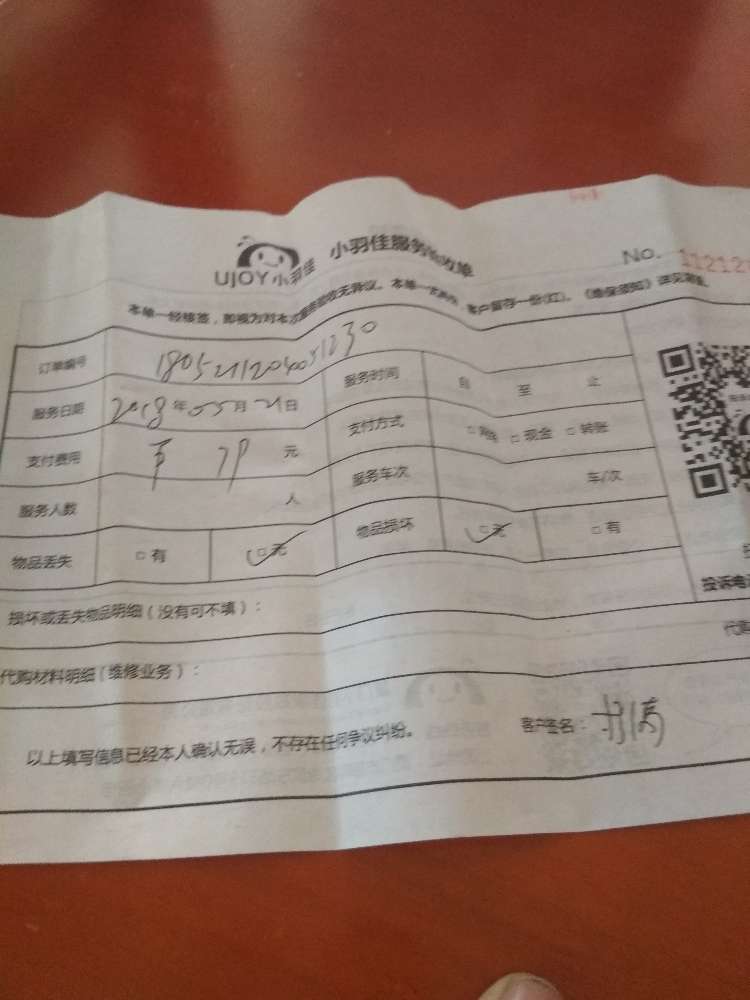 UJOY 小羽佳 小羽佳服务验收单
No. 112121
本单一经核签，即视为对本次服务验收无异议。本单一式两份，客户留存一份(红)。《维保须知》详见背面。
订单编号 服务时间 自 至 止
服务日期 2018年05月21日 支付方式 □ 现金 □ 转账
支付费用 元 服务车次 车/次
服务人数 人
物品丢失 □ 有 □ 无 物品损坏 □ 无 □ 有
投诉电
损坏或丢失物品明细（没有可不填）：
代购
代购材料明细（维修业务）：
以上填写信息已经本人确认无误，不存在任何争议纠纷。 客户签名：